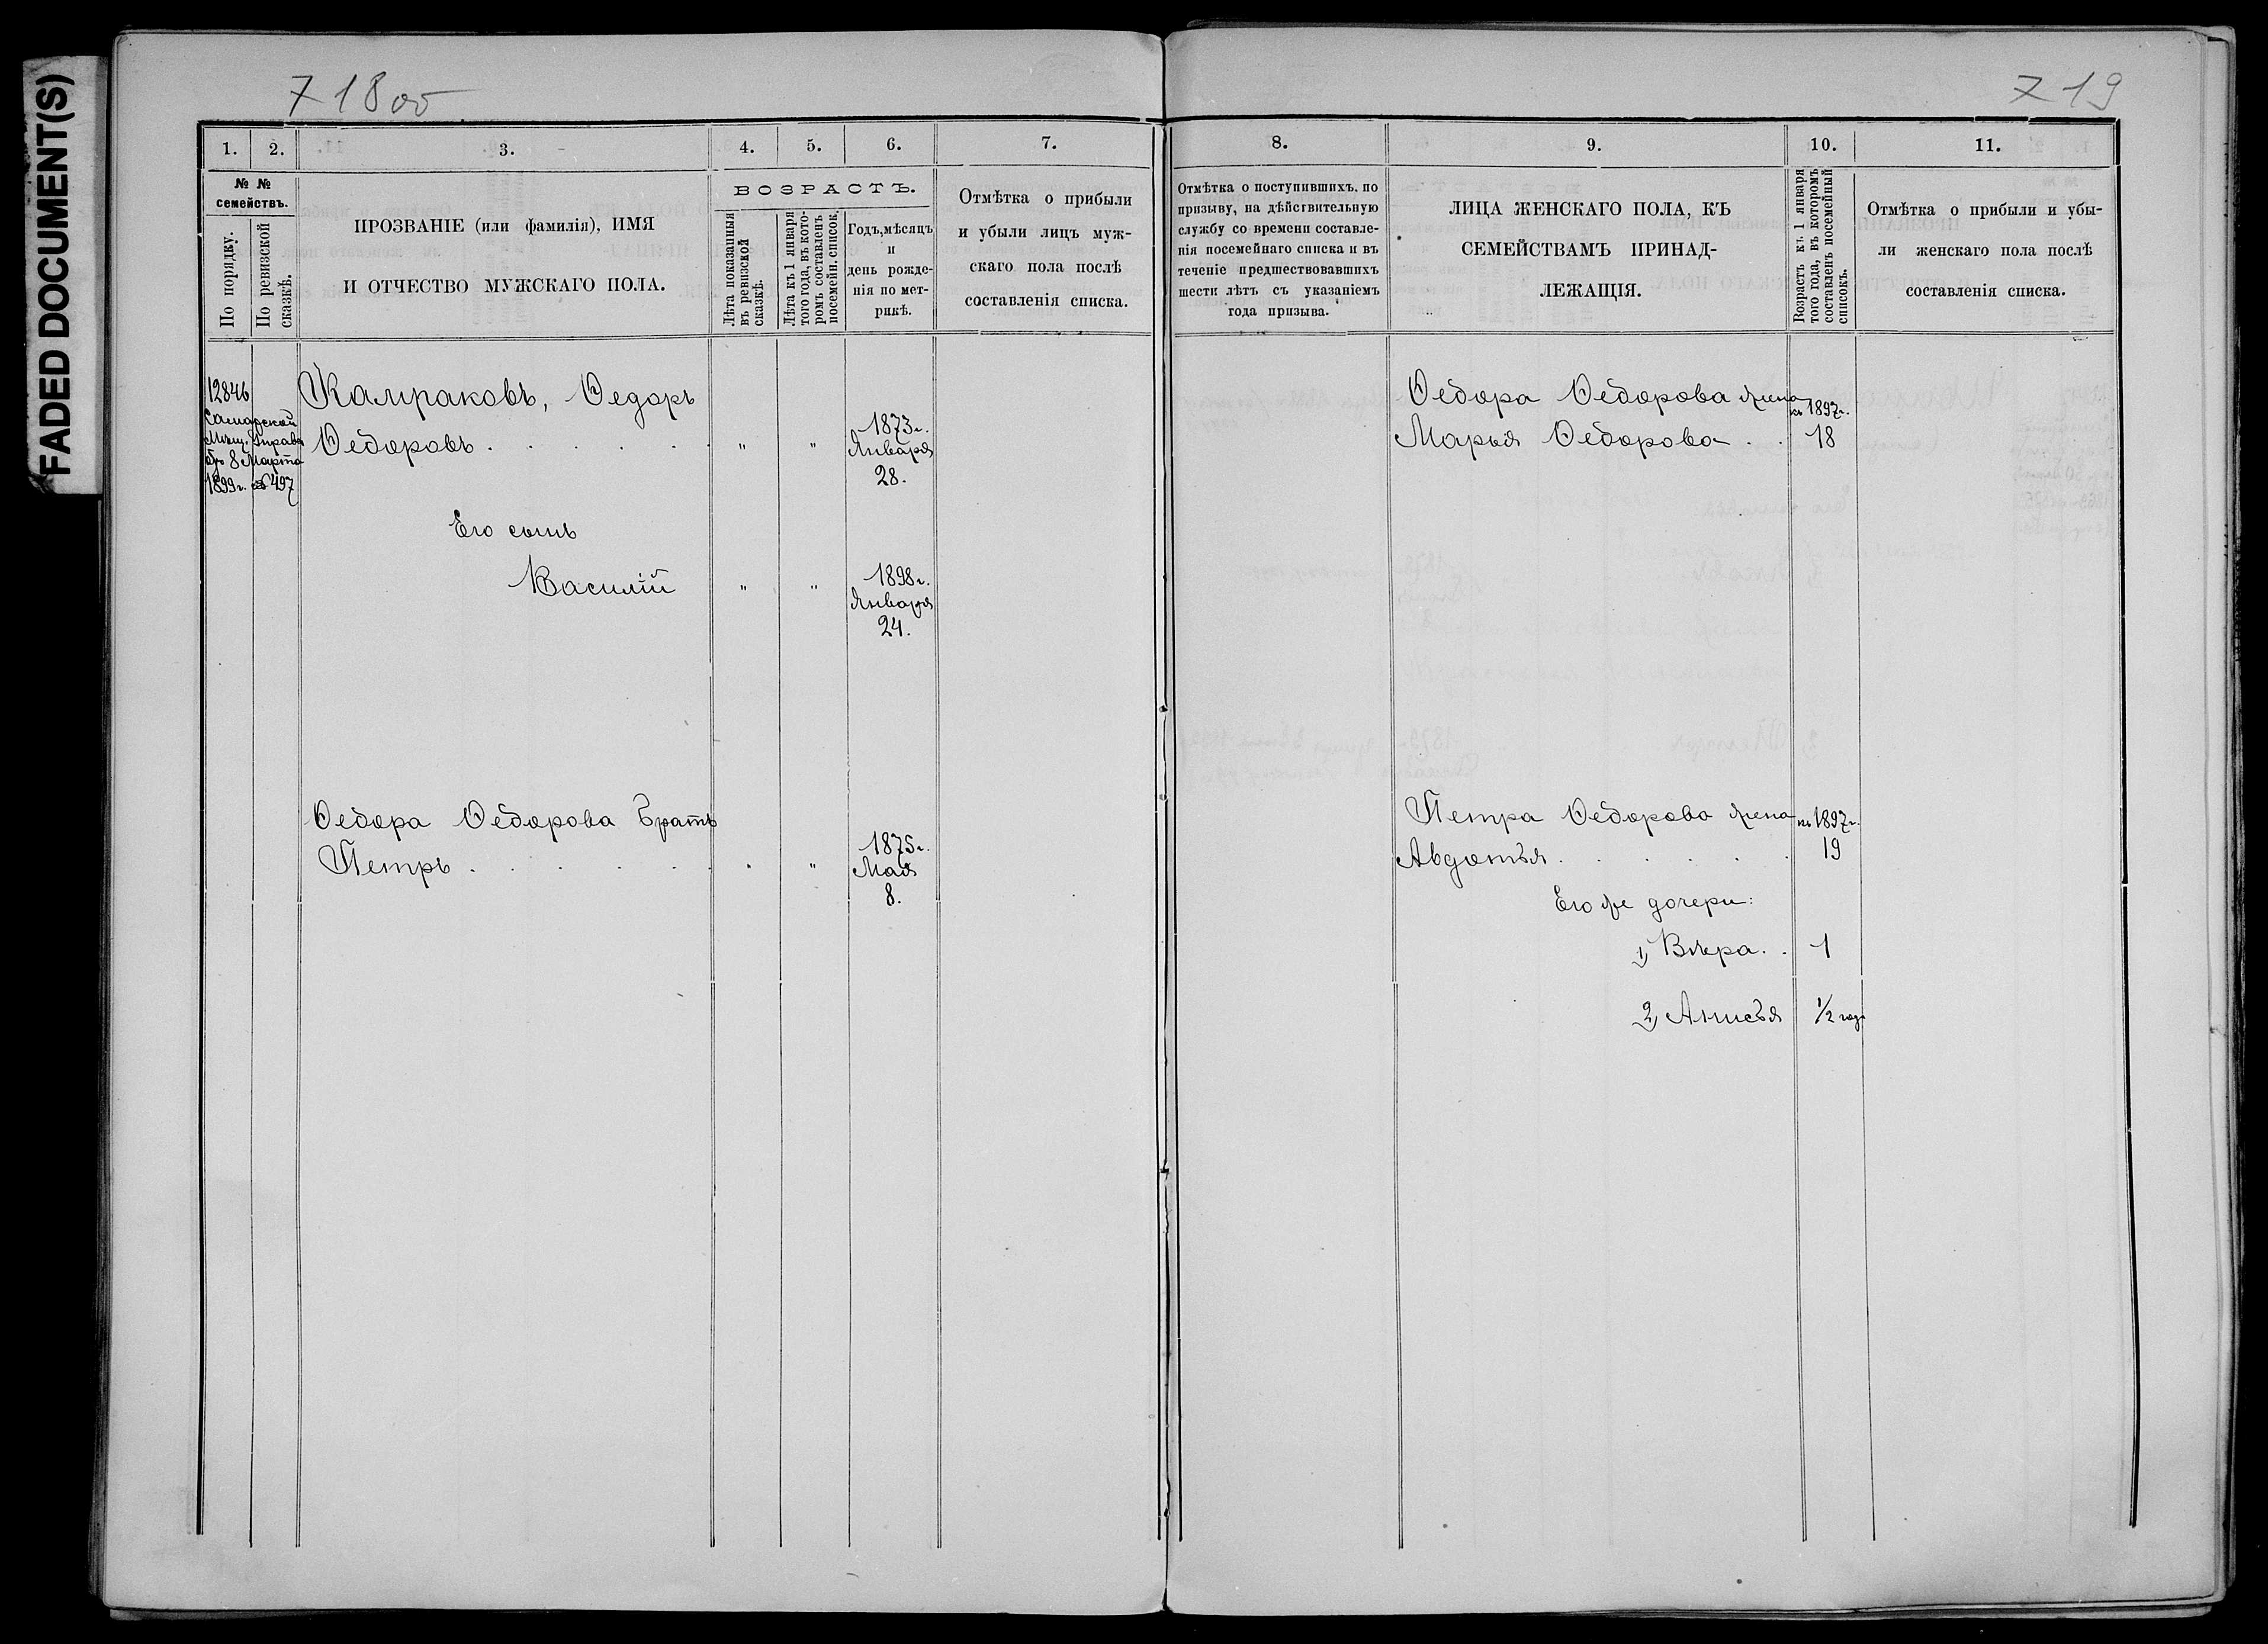 FADED DOCUMENT(S)
718 об
719
1. 2. 3. 4. 5. 6. 7.
№ № семействъ.
По порядку.
По ревизской сказкѣ.
ПРОЗВАНІЕ (или фамилія), ИМЯ
И ОТЧЕСТВО МУЖСКАГО ПОЛА.
ВОЗРАСТЪ.
Лѣта показанныя
въ ревизской
сказкѣ.
Лѣта къ 1 января
того года, въ кото-
ромъ составленъ
посемейн. список.
Годъ, мѣсяцъ
и
день рожде-
нія по мет-
рикѣ.
Отмѣтка о прибыли
и убыли лицъ муж-
скаго пола послѣ
составленія списка.
12846
Самарской
Мѣщ. Управы
отъ 8 Марта
1899 г. за № 497
Камраковъ, Ѳедоръ
Ѳедоровъ . . . . . " " 1873 г.
Января
28.
Его сынъ
Василій " " 1898 г.
Января
24.
Ѳедора Ѳедорова братъ
Петръ . . . . . . " 1875 г.
Мая
8.
8. 9. 10. 11.
Отмѣтка о поступившихъ. по
призыву, на дѣйствительную
службу со времени составле-
нія посемейнаго списка и въ
теченіе предшествовавшихъ
шести лѣтъ съ указаніемъ
года призыва.
ЛИЦА ЖЕНСКАГО ПОЛА, КЪ
СЕМЕЙСТВАМЪ ПРИНАД-
ЛЕЖАЩІЯ.
Возрастъ къ 1 января
того года, въ которомъ
составленъ посемейный
списокъ.
Отмѣтка о прибыли и убы-
ли женскаго пола послѣ
составленія списка.
Ѳедора Ѳедорова жена къ 1897 г.
Марья Ѳедорова . . 18
Петра Ѳедорова жена къ 1897 г.
Авдотья . . . . . . 19
Его же дочери:
1) Вѣра . . 1
2) Анисья 1/2 года